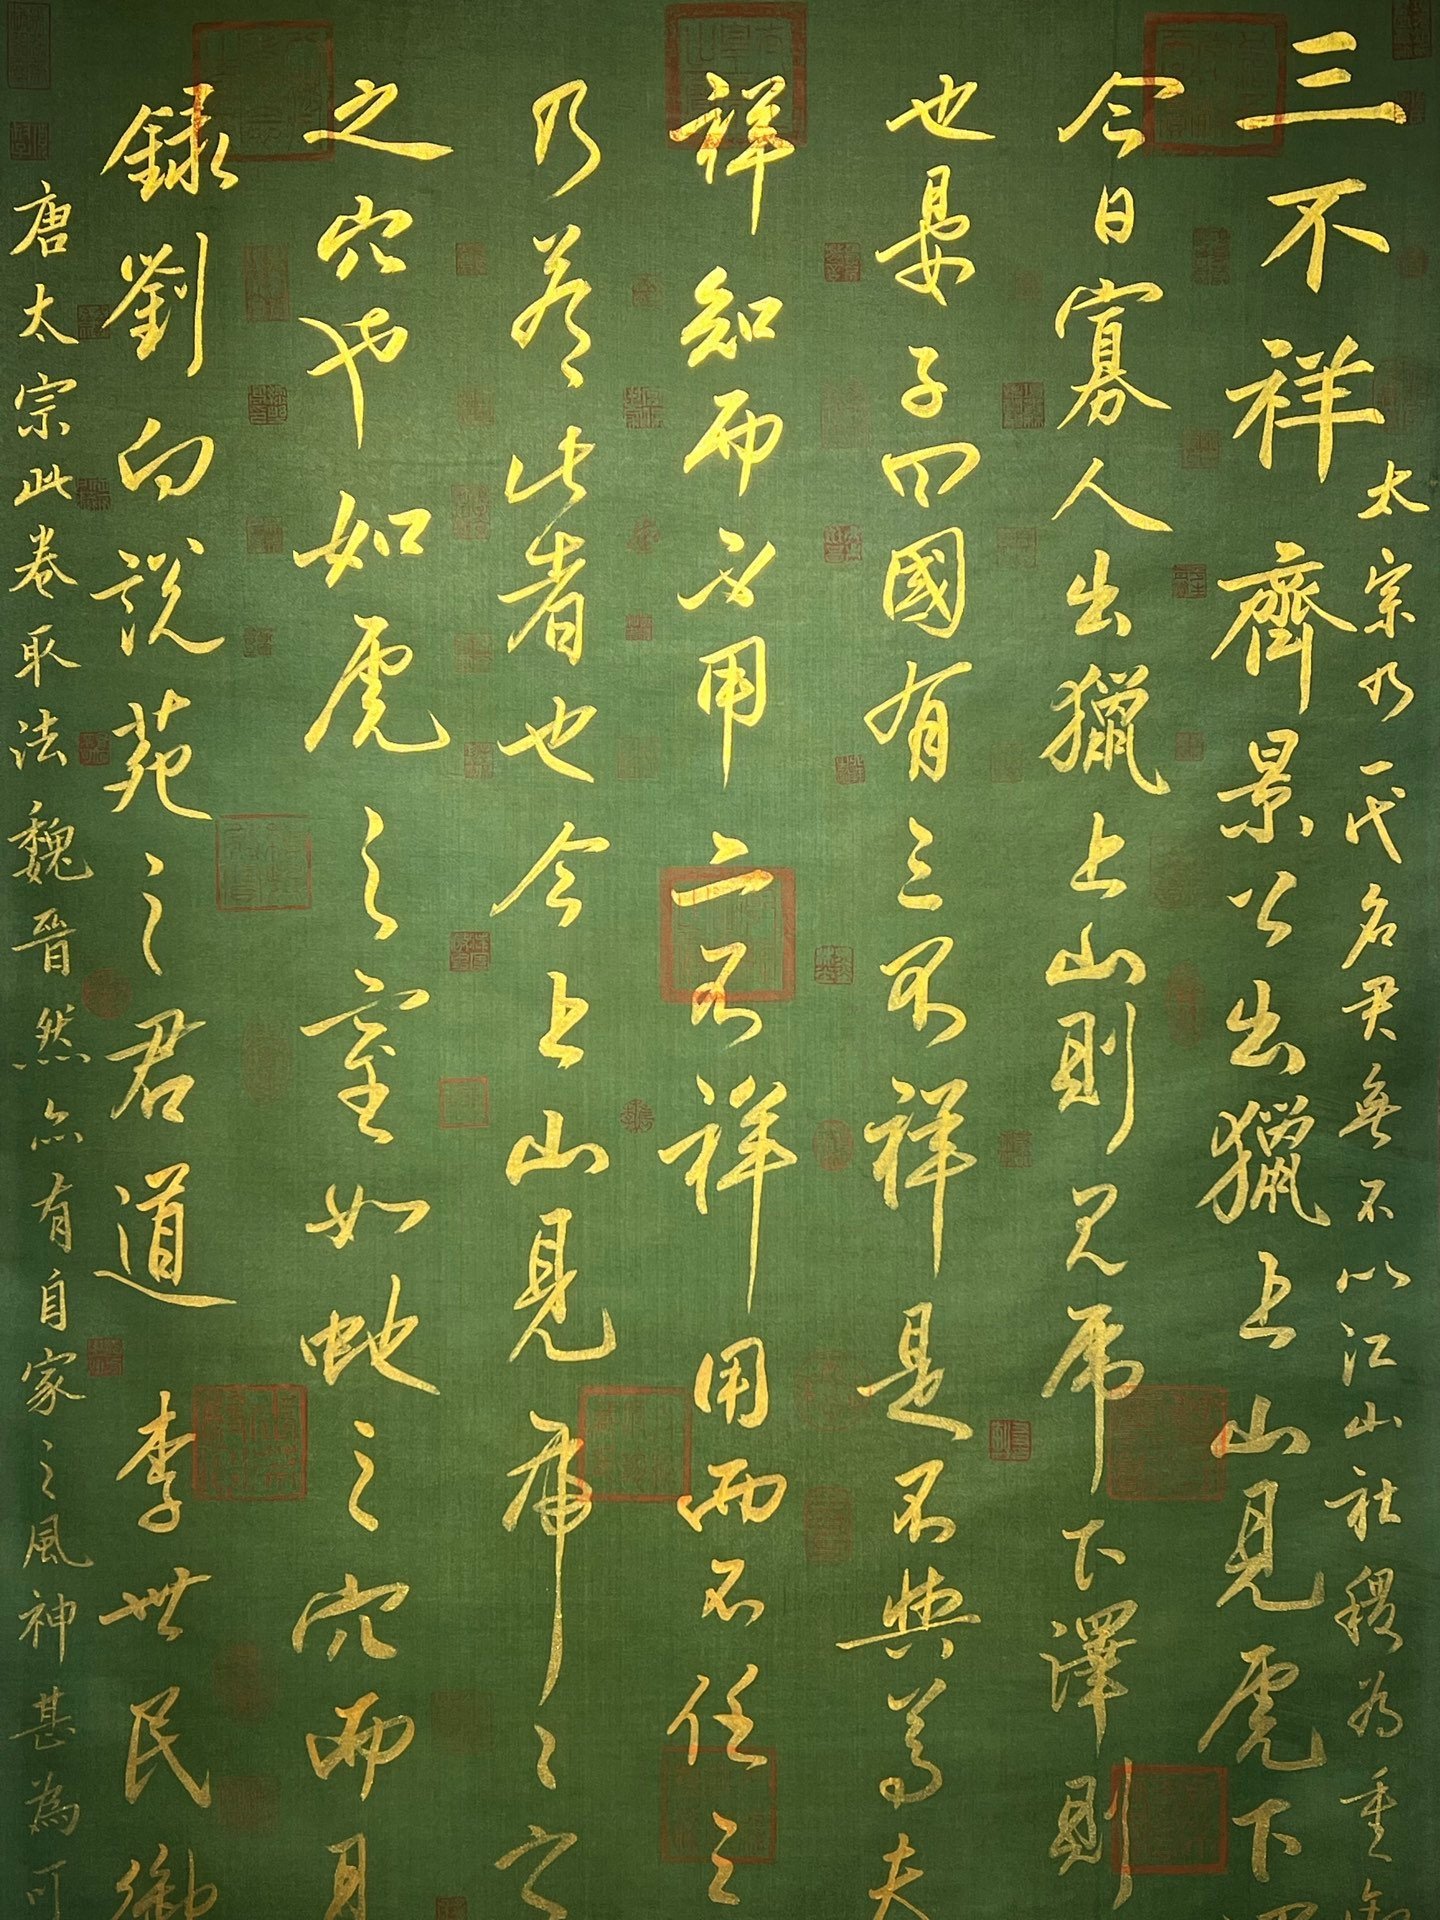 三不祥
太宗乃一代名君無不以江山社稷為重
齊景公出獵上山見虎下
今日寡人出獵上山則見虎下澤則
也晏子曰國有三不祥是不與焉夫
祥知而不用二不祥用而不任三
乃若此者也今上山見虎虎之
之穴也如虎之室如蛇之穴而
錄劉向說苑之君道 李世民
唐太宗此卷取法魏晉然亦有自家之風神甚為可